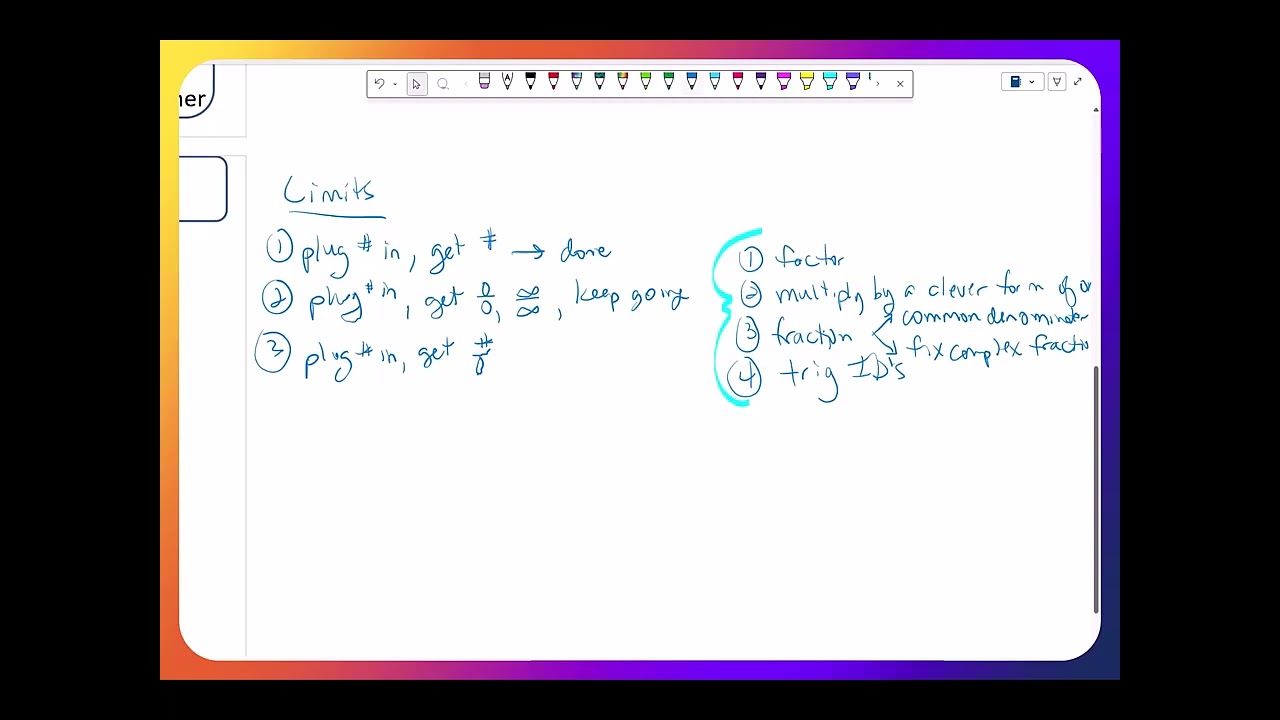 ner
Limits
① plug # in, get # → done
② plug # in, get 0/0, ∞/∞, keep going
③ plug # in, get #/0
① factor
② multiply by a clever form of
③ fraction
common denominator
fix complex fractio
④ trig ID's